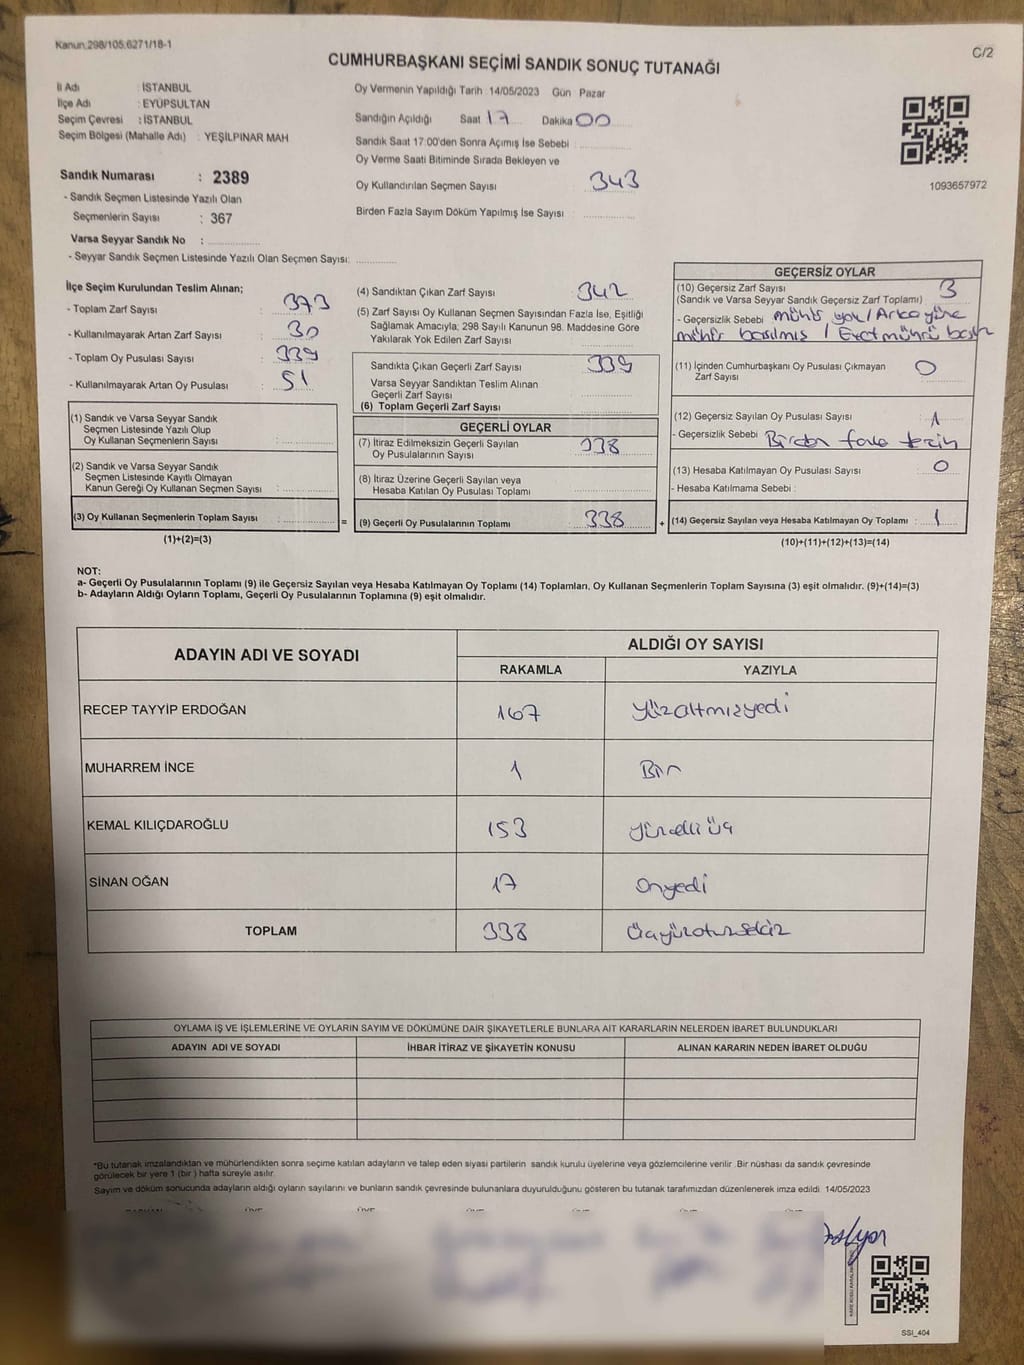 Kanun:298/105,6271/18-1
C/2
CUMHURBAŞKANI SEÇİMİ SANDIK SONUÇ TUTANAĞI
İl Adı : İSTANBUL
İlçe Adı : EYÜPSULTAN
Seçim Çevresi : İSTANBUL
Seçim Bölgesi (Mahalle Adı) : YEŞİLPINAR MAH
Sandık Numarası : 2389
- Sandık Seçmen Listesinde Yazılı Olan
Seçmenlerin Sayısı : 367
Varsa Seyyar Sandık No :
- Seyyar Sandık Seçmen Listesinde Yazılı Olan Seçmen Sayısı:
Oy Vermenin Yapıldığı Tarih : 14/05/2023 Gün : Pazar
Sandığın Açıldığı Saat : 17 Dakika : 00
Sandık Saat 17:00'den Sonra Açımış İse Sebebi :
Oy Verme Saati Bitiminde Sırada Bekleyen ve
Oy Kullandırılan Seçmen Sayısı : 343
Birden Fazla Sayım Döküm Yapılmış İse Sayısı :
1093657972
İlçe Seçim Kurulundan Teslim Alınan;
- Toplam Zarf Sayısı : 373
- Kullanılmayarak Artan Zarf Sayısı : 30
- Toplam Oy Pusulası Sayısı : 339
- Kullanılmayarak Artan Oy Pusulası : 51
(1) Sandık ve Varsa Seyyar Sandık
Seçmen Listesinde Yazılı Olup
Oy Kullanan Seçmenlerin Sayısı :
(2) Sandık ve Varsa Seyyar Sandık
Seçmen Listesinde Kayıtlı Olmayan
Kanun Gereği Oy Kullanan Seçmen Sayısı :
(3) Oy Kullanan Seçmenlerin Toplam Sayısı :
(1)+(2)=(3)
=
(4) Sandıktan Çıkan Zarf Sayısı : 342
(5) Zarf Sayısı Oy Kullanan Seçmen Sayısından Fazla İse, Eşitliği
Sağlamak Amacıyla; 298 Sayılı Kanunun 98. Maddesine Göre
Yakılarak Yok Edilen Zarf Sayısı :
Sandıkta Çıkan Geçerli Zarf Sayısı : 339
Varsa Seyyar Sandıktan Teslim Alınan
Geçerli Zarf Sayısı :
(6) Toplam Geçerli Zarf Sayısı :
GEÇERLİ OYLAR
(7) İtiraz Edilmeksizin Geçerli Sayılan
Oy Pusulalarının Sayısı : 338
(8) İtiraz Üzerine Geçerli Sayılan veya
Hesaba Katılan Oy Pusulası Toplamı :
(9) Geçerli Oy Pusulalarının Toplamı : 338
+
GEÇERSİZ OYLAR
(10) Geçersiz Zarf Sayısı : 3
(Sandık ve Varsa Seyyar Sandık Geçersiz Zarf Toplamı)
- Geçersizlik Sebebi : mühür yok / Arka yüze
mühür basılmış / Evet mührü
(11) İçinden Cumhurbaşkanı Oy Pusulası Çıkmayan
Zarf Sayısı : 0
(12) Geçersiz Sayılan Oy Pusulası Sayısı : 1
- Geçersizlik Sebebi : Birden fazla tercih
(13) Hesaba Katılmayan Oy Pusulası Sayısı : 0
- Hesaba Katılmama Sebebi :
(14) Geçersiz Sayılan veya Hesaba Katılmayan Oy Toplamı : 1
(10)+(11)+(12)+(13)=(14)
NOT:
a- Geçerli Oy Pusulalarının Toplamı (9) ile Geçersiz Sayılan veya Hesaba Katılmayan Oy Toplamı (14) Toplamları, Oy Kullanan Seçmenlerin Toplam Sayısına (3) eşit olmalıdır. (9)+(14)=(3)
b- Adayların Aldığı Oyların Toplamı, Geçerli Oy Pusulalarının Toplamına (9) eşit olmalıdır.
ADAYIN ADI VE SOYADI
ALDIĞI OY SAYISI
RAKAMLA YAZIYLA
RECEP TAYYİP ERDOĞAN 167 Yüzaltmışyedi
MUHARREM İNCE 1 Bir
KEMAL KILIÇDAROĞLU 153 yüzelli üç
SİNAN OĞAN 17 Onyedi
TOPLAM 338 Üçyüzotuzsekiz
OYLAMA İŞ VE İŞLEMLERİNE VE OYLARIN SAYIM VE DÖKÜMÜNE DAİR ŞİKAYETLERLE BUNLARA AİT KARARLARIN NELERDEN İBARET BULUNDUKLARI
ADAYIN ADI VE SOYADI İHBAR İTİRAZ VE ŞİKAYETİN KONUSU ALINAN KARARIN NEDEN İBARET OLDUĞU
*Bu tutanak imzalandıktan ve mühürlendikten sonra seçime katılan adayların ve talep eden siyasi partilerin sandık kurulu üyelerine veya gözlemcilerine verilir .Bir nüshası da sandık çevresinde
görülecek bir yere 1 (bir ) hafta süreyle asılır.
Sayım ve döküm sonucunda adayların aldığı oyların sayılarını ve bunların sandık çevresinde bulunanlara duyurulduğunu gösteren bu tutanak tarafımızdan düzenlenerek imza edildi. 14/05/2023
SSI_404